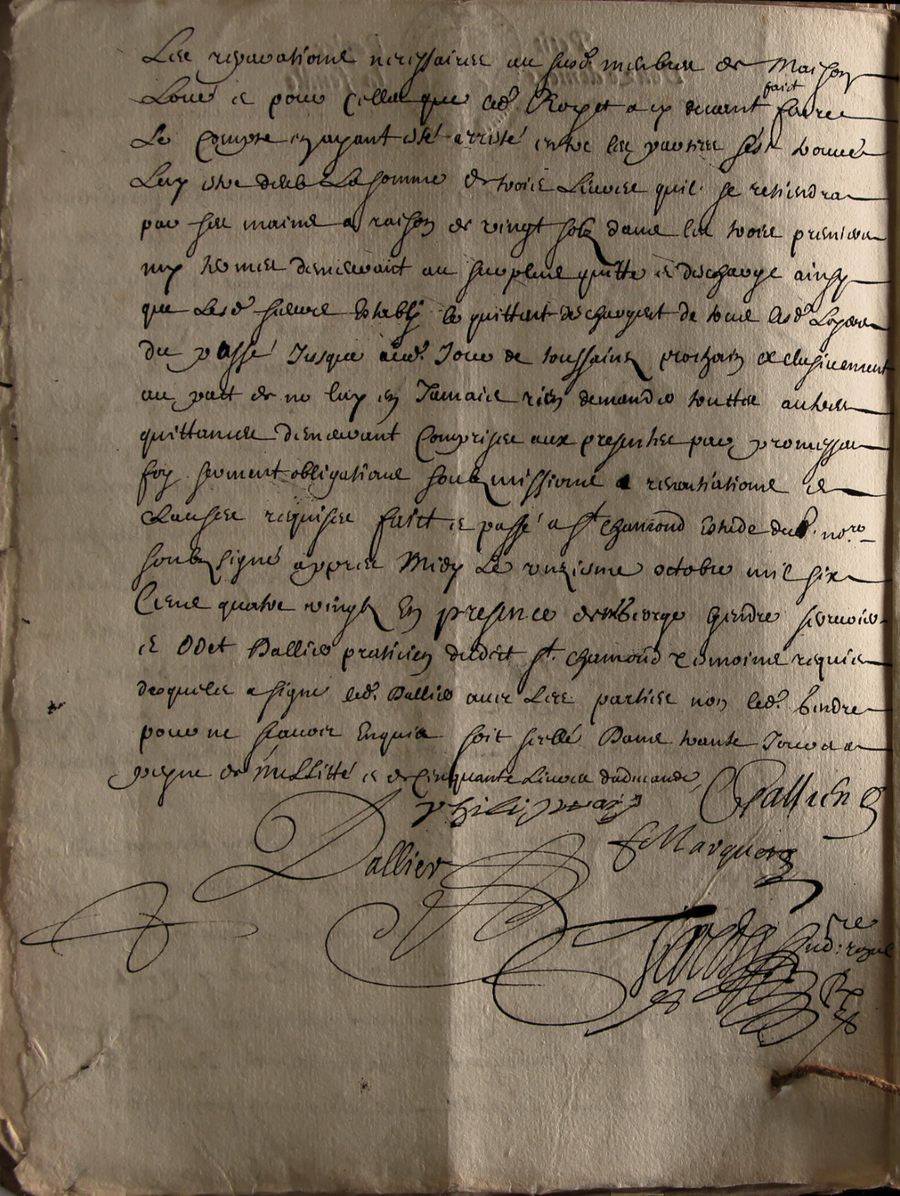 Les reparations necessaires au susd. membre de Maison
Loué et pour cella que led. Royet a cy devant fait faire
Le compte en ayant esté arresté entre les parties s'est trouvé
Luy estre deub La somme de trois Livres quil se retiendra
par ses mains a raison de vingt solz dans les trois premiers
termes au surplus quitte et descharge ainsy
que Lesd. sieurs establis le quittent deschargent de tous lesd. Loyers
Du passé Jusques aud. Jour de toussaintz prochain exclusivement
au pact de ne luy en Jamais rien demander touttes autres
quittances cy devant comprises aux presentes par promesses
foy serment obligations soubzmissions renontiations et
clauses requises fait et passé a St. chamond estude du no.re
soubzsigné appres Midy Le unziesme octobre mil six
Cens quatre vingtz En presence de gendre
et Odet Dallier praticien dudit St. chamond temoins requis
desquels a signé led. Dallier avec Les parties non led. gendre
pour ne scavoir Enquis soit seellé Dans trante Jours a
peyne de nullitté et de cinquante Livres d'admande
Dallier
Marquet
royal